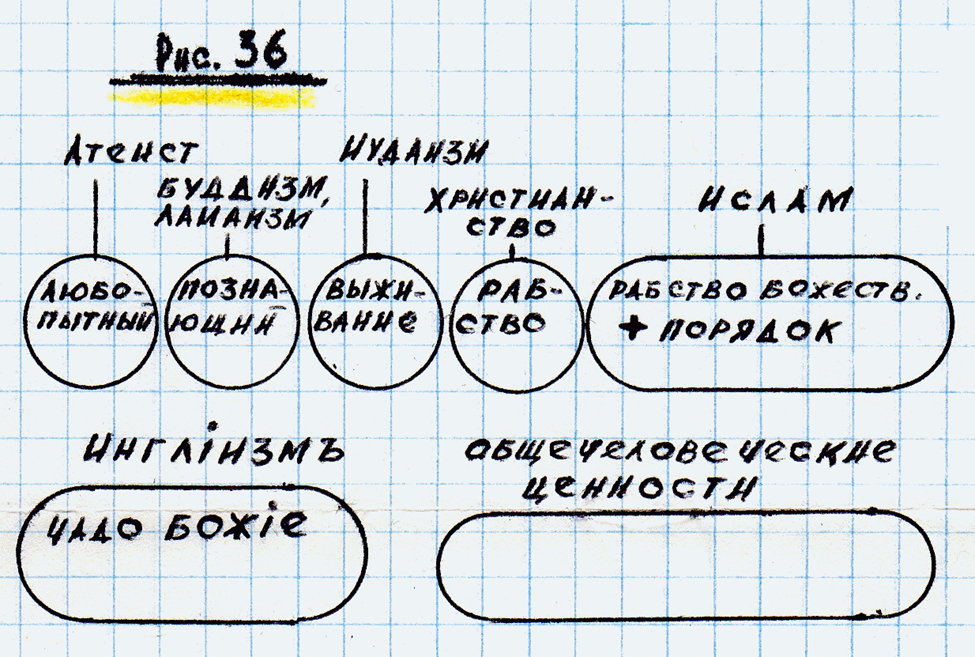 Рис. 36
Атеист
БУДДИЗМ,
ЛАМАИЗМ
ИУДАИЗМ
ХРИСТИАН-
СТВО
ИСЛАМ
ЛЮБО-
ПЫТНЫЙ
ПОЗНА-
ЮЩИЙ
ВЫЖИ-
ВАНИЕ
РАБ-
СТВО
РАБСТВО БОЖЕСТВ.
+ ПОРЯДОК
ИНГЛIИЗМЪ
ЧАДО БОЖIЕ
ОБЩЕЧЕЛОВЕЧЕСКИЕ
ЦЕННОСТИ